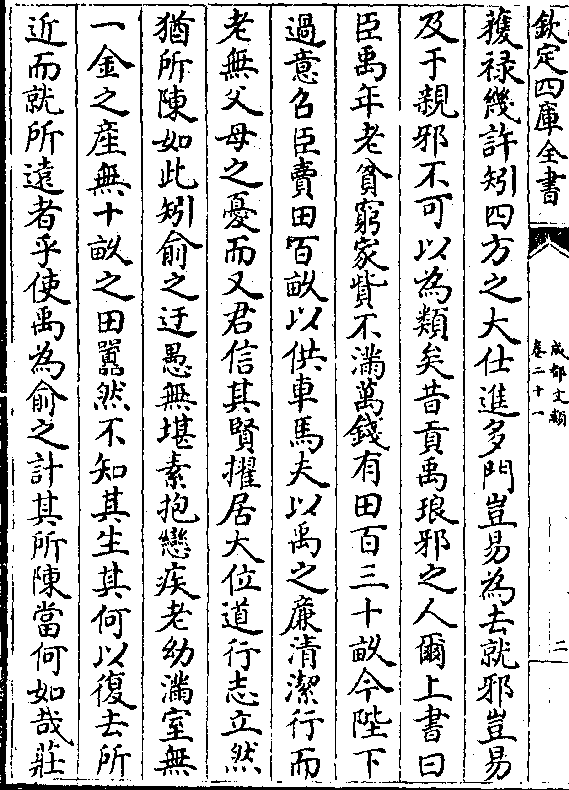 欽定四庫全書
成都文類
卷二十一
二
蒦祿幾許矧四方之大仕進多門豈易為去就邪豈易
及于親邪不可以為類矣昔貢禹琅邪之人爾上書曰
臣禹年老貧窮家貲不滿萬錢有田百三十畝今陛下
過意召臣賣田百畝以供車馬夫以禹之廉清潔行而
老無父母之憂而又君信其賢擢居大位道行志立然
猶所陳如此矧俞之迂愚無堪素抱戀疾老幼滿室無
一金之産無十畝之田嚚然不知其生其何以復去所
近而就所遠者乎使禹為俞之計其所陳當何如哉莊